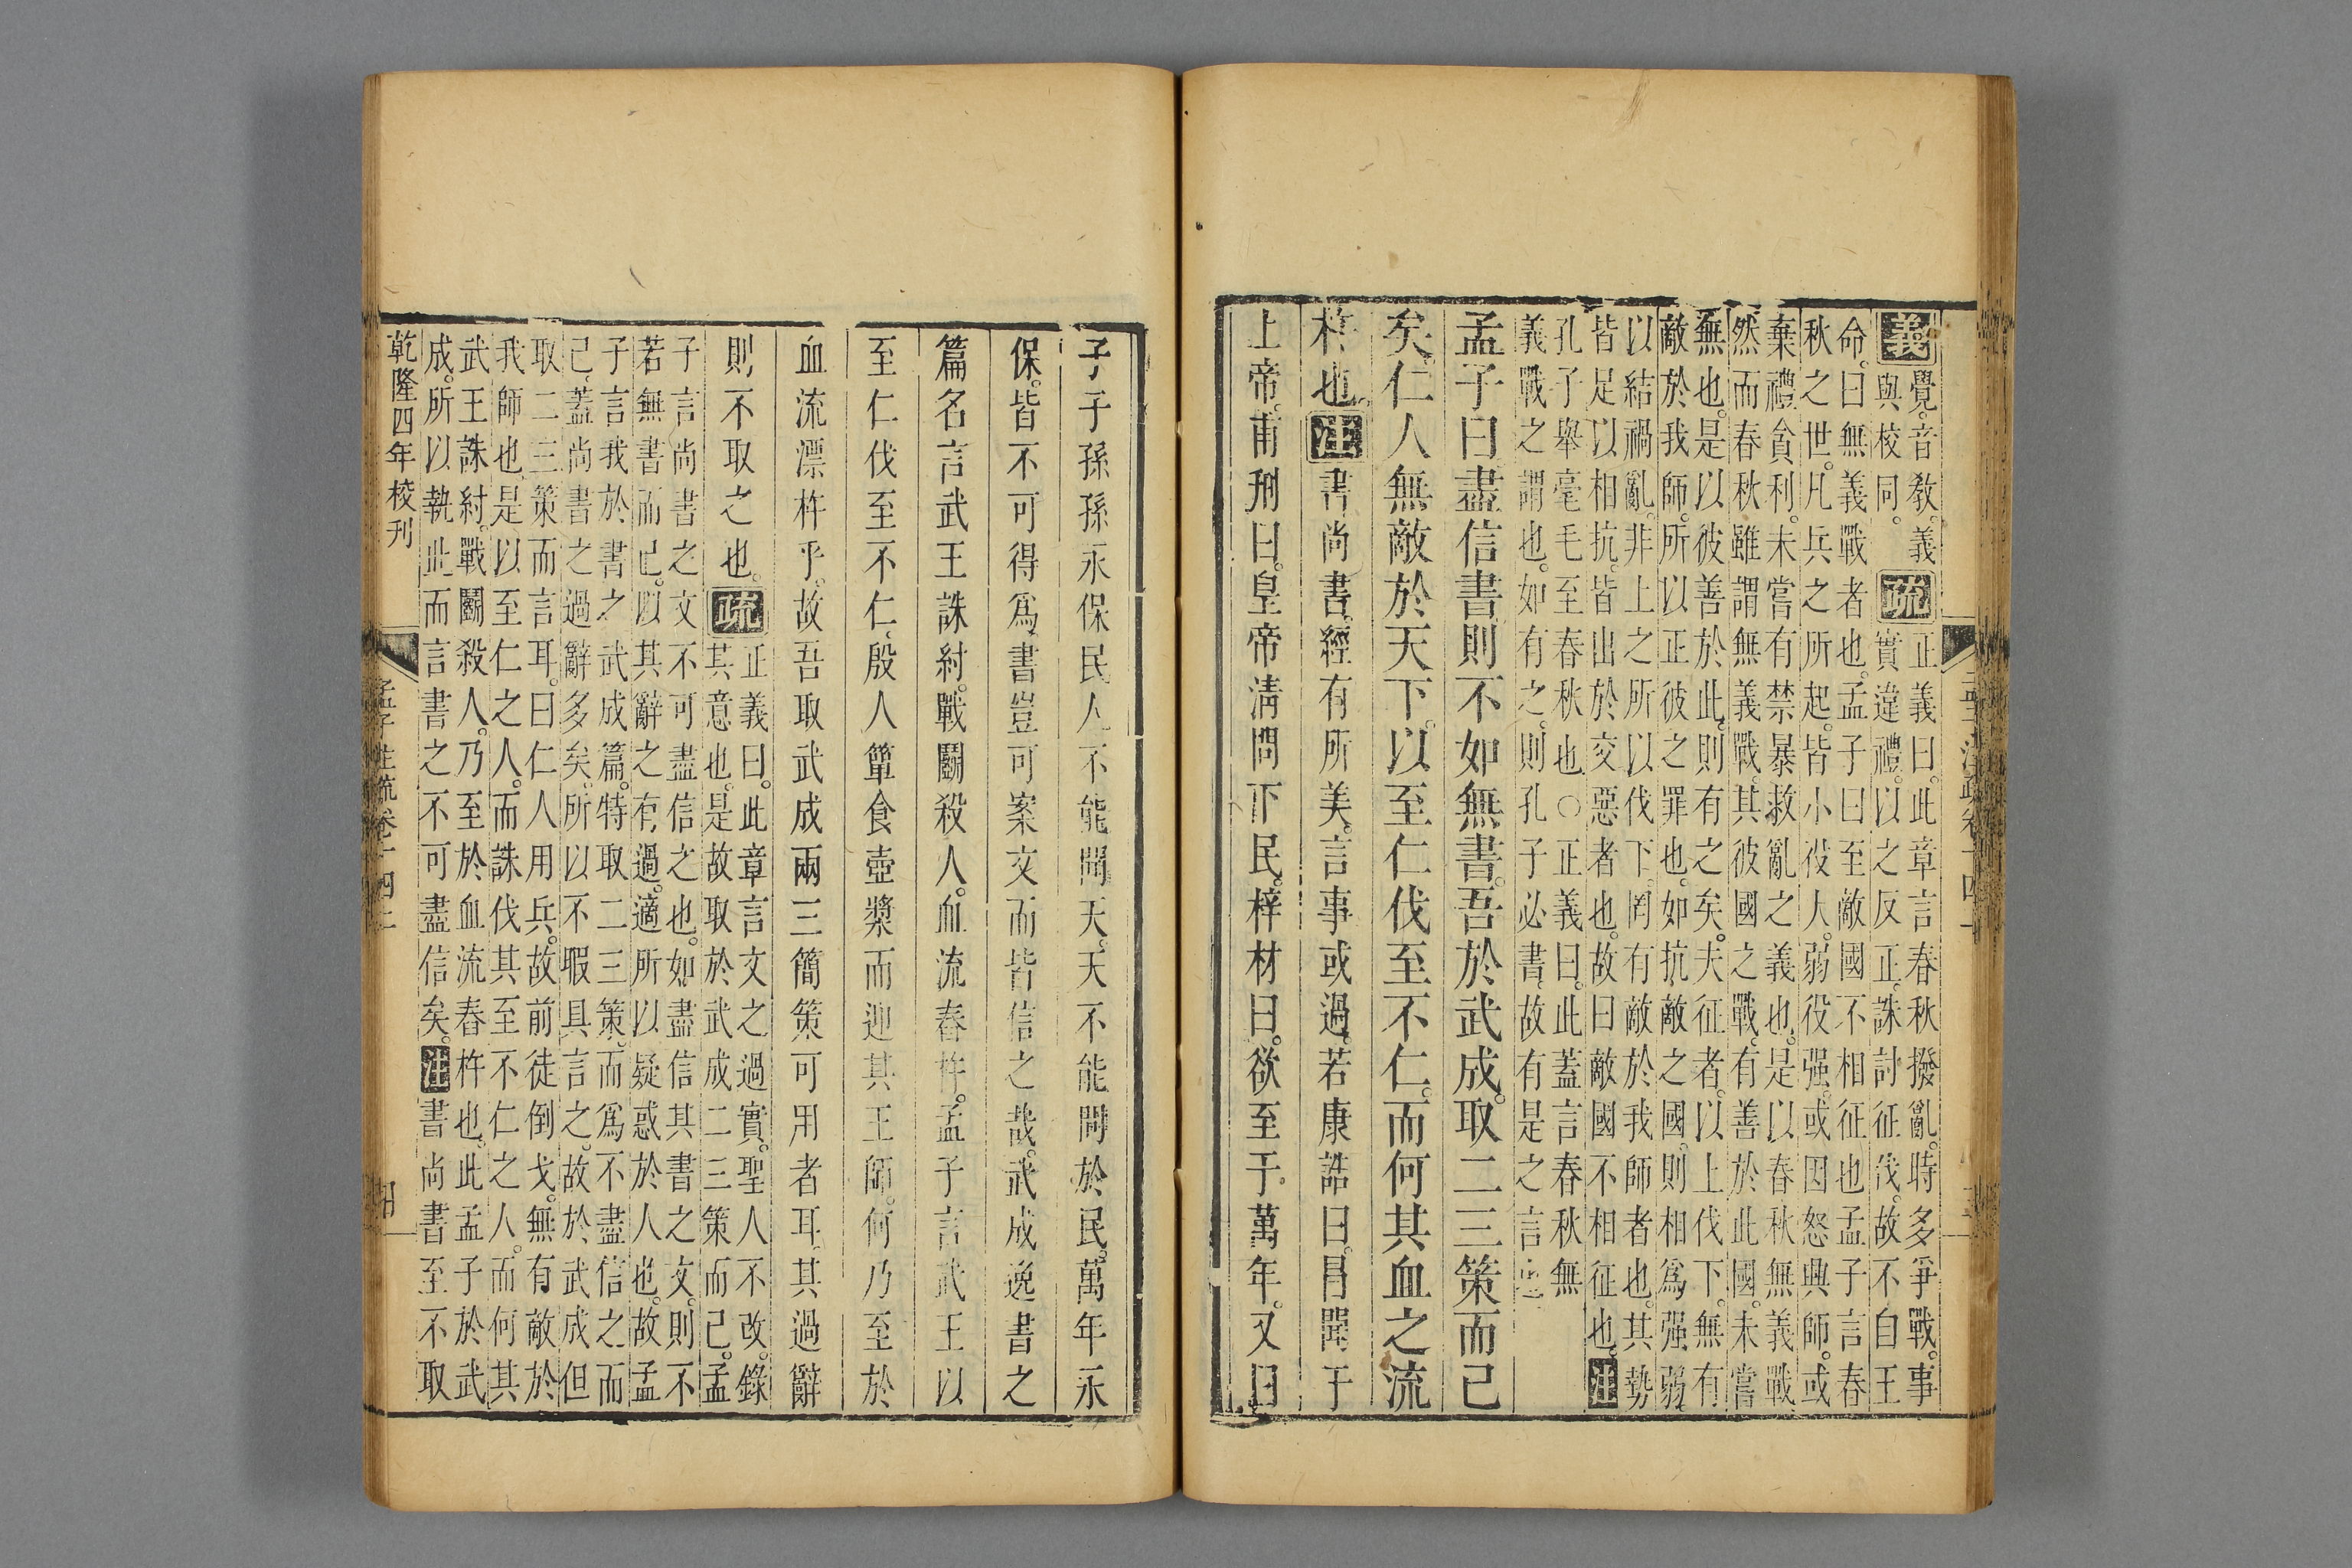 義覺。音敎。義
與校同。
疏正義曰。此章言春秋撥亂。時多爭戰。事
實違禮。以之反正。誅討征伐。故不自王
命。曰無義戰者也。孟子曰至敵國不相征也孟子言春
秋之世。凡兵之所起。皆小役人。弱役强。或因怒興師。或
棄禮貪利。未嘗有禁暴救亂之義也。是以春秋無義戰
然而春秋雖謂無義戰。其彼國之戰。有善於此國。未嘗
無也。是以彼善於此。則有之矣。夫征者。以上伐下。無有
敵於我師。所以正彼之罪也。如抗敵之國。則相爲强弱
以結禍亂。非上之所以伐下。罔有敵於我師者也。其勢
皆足以相抗。皆出於交惡者也。故曰敵國不相征也。注
孔子舉毫毛至春秋也○正義曰。此蓋言春秋無
義戰之謂也。如有之。則孔子必書。故有是之言
孟子曰盡信書則不如無書。吾於武成。取二三策而已
矣。仁人無敵於天下。以至仁伐至不仁。而何其血之流
杵也。注書尚書。經有所美。言事或過。若康誥曰。冒聞于
上帝。甫刑曰。皇帝淸問下民。梓材曰。欲至于萬年。又曰
子子孫孫永保民人不能聞天。天不能問於民。萬年永
保。皆不可得爲。書豈可案文而皆信之哉。武成逸書之
篇名言武王誅紂。戰鬭殺人。血流舂杵。孟子言武王以
至仁伐至不仁。殷人簞食壺漿而迎其王師。何乃至於
血流漂杵乎。故吾取武成兩三簡策可用者耳。其過辭
則不取之也。疏正義曰。此章言文之過實。聖人不改。錄
其意也。是故取於武成二三策而已。孟
子言尚書之文不可盡信之也。如盡信其書之文。則不
若無書而已。以其辭之有過。適所以疑惑於人也。故孟
子言我於書之武成篇。特取二三策而爲不盡信之而
已。蓋尚書之過辭多矣。所以不暇具言之。故於武成但
取二三策而言耳。曰仁人用兵。故前徒倒戈。無有敵於
我師也。是以至仁之人。而誅伐其至不仁之人。而何其
武王誅紂。戰鬭殺人。乃至於血流舂杵也。此孟子於武
成。所以執此而言書之不可盡信矣。注書尚書至不取
乾隆四年校刊
孟子註疏卷十四上